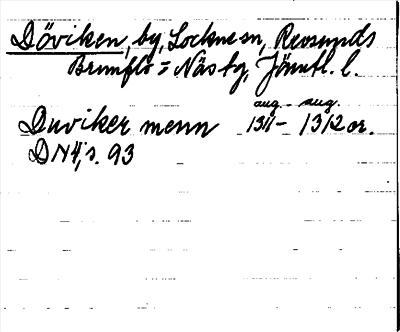 Döviken, by, Lockne sn, Revsunds
Brunflo = Näs tg, Jämtl. l.
aug. - aug.
Duviker menn 1311 - 1312 or.
DN 4, s. 93